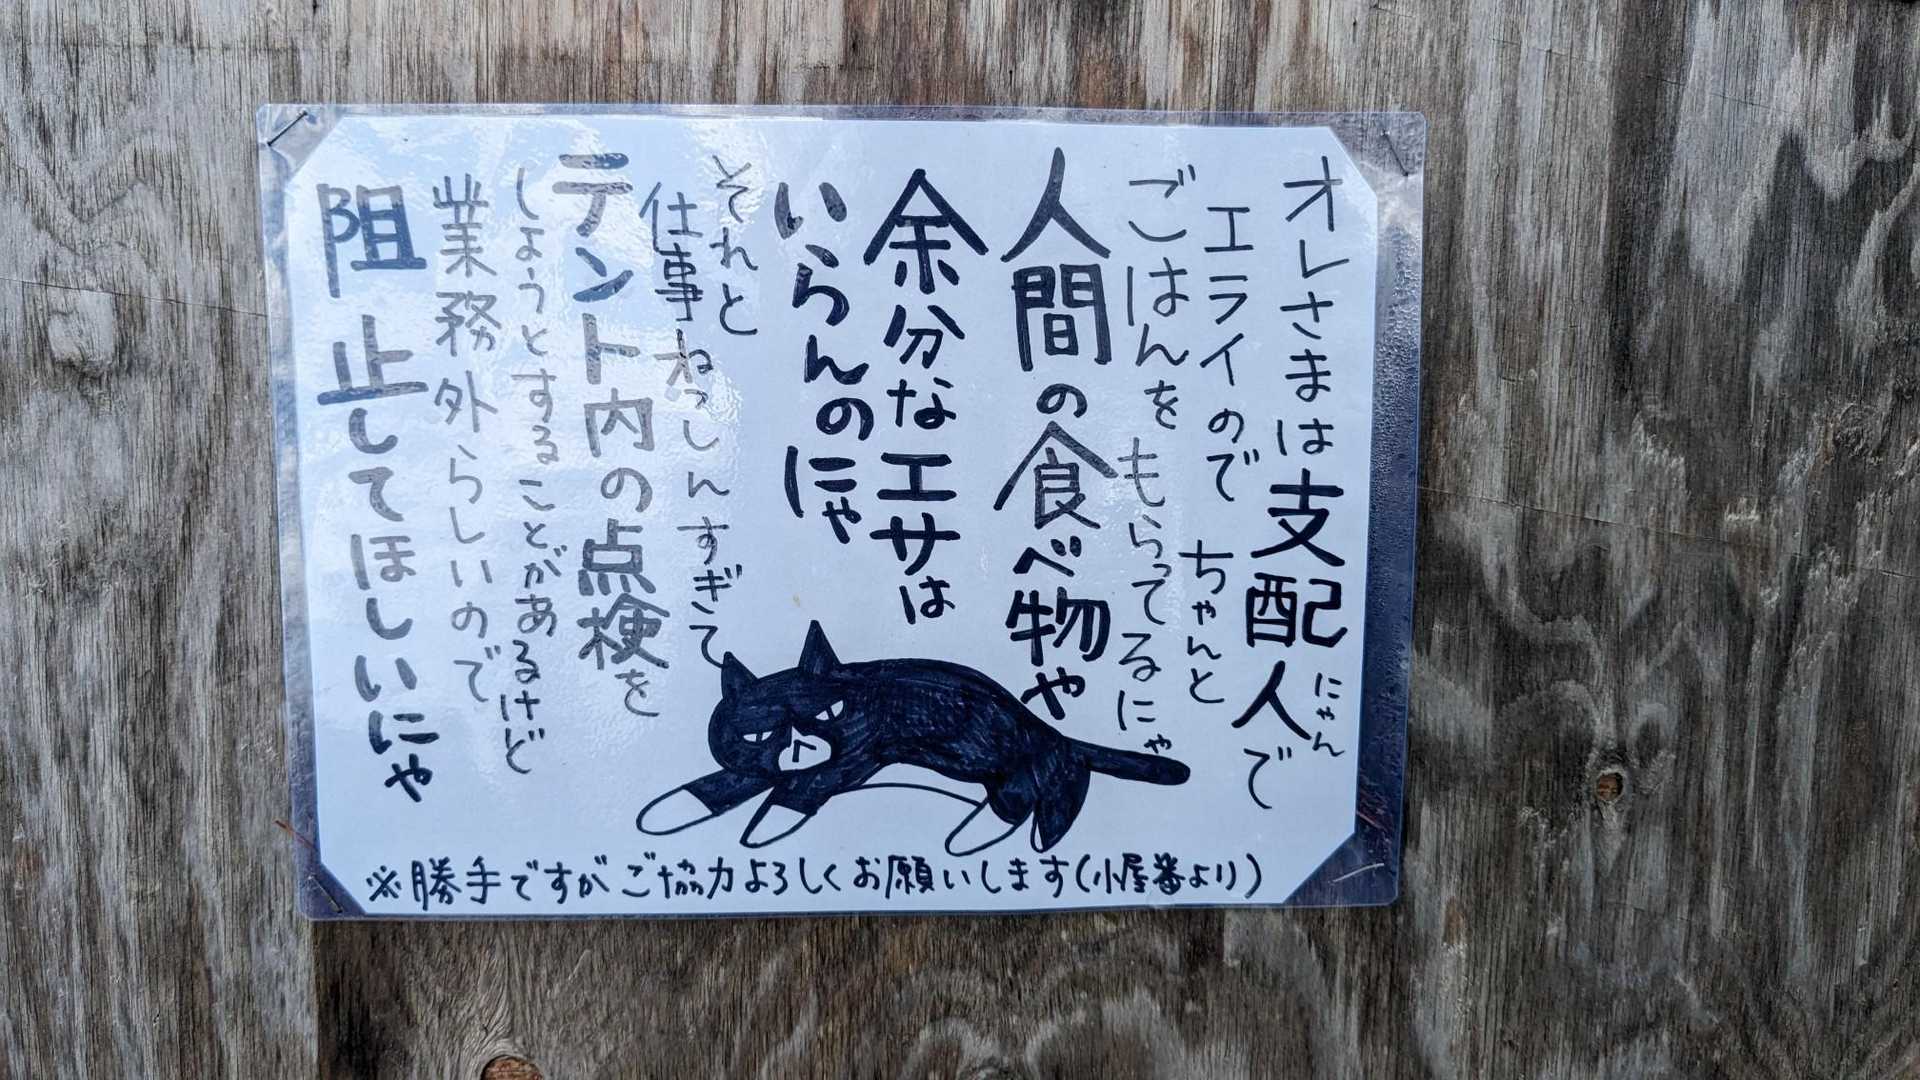 オレさまは支配人で
にゃん
エライので ちゃんと
ごはんを もらってるにゃ
人間の食べ物や
余分なエサは
いらんのにゃ
それと
仕事ねっしんすぎて
テント内の点検を
しようとすることがあるけど
業務外らしいので
阻止してほしいにゃ
※勝手ですがご協力よろしくお願いします(小屋番より)